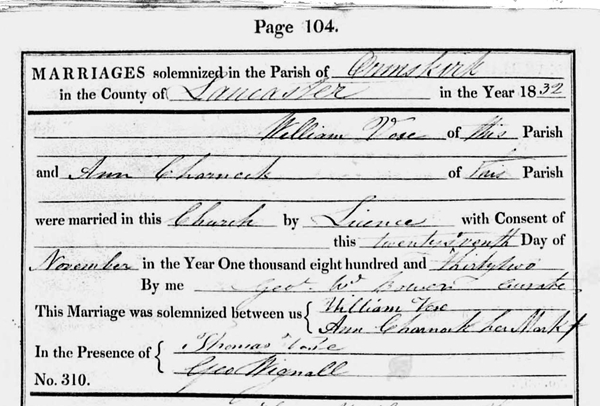 Page 104.
MARRIAGES solemnized in the Parish of Ormskirk
in the County of Lancaster in the Year 1832
William Vose of this Parish
and Ann Charnock of this Parish
were married in this Church by Licence with Consent of
this twenty seventh Day of
November in the Year One thousand eight hundred and thirty two
By me Geo. Curate
This Marriage was solemnized between us { William Vose
Ann Charnock her Mark
In the Presence of { Thomas Vose
Geo Wignall
No. 310.